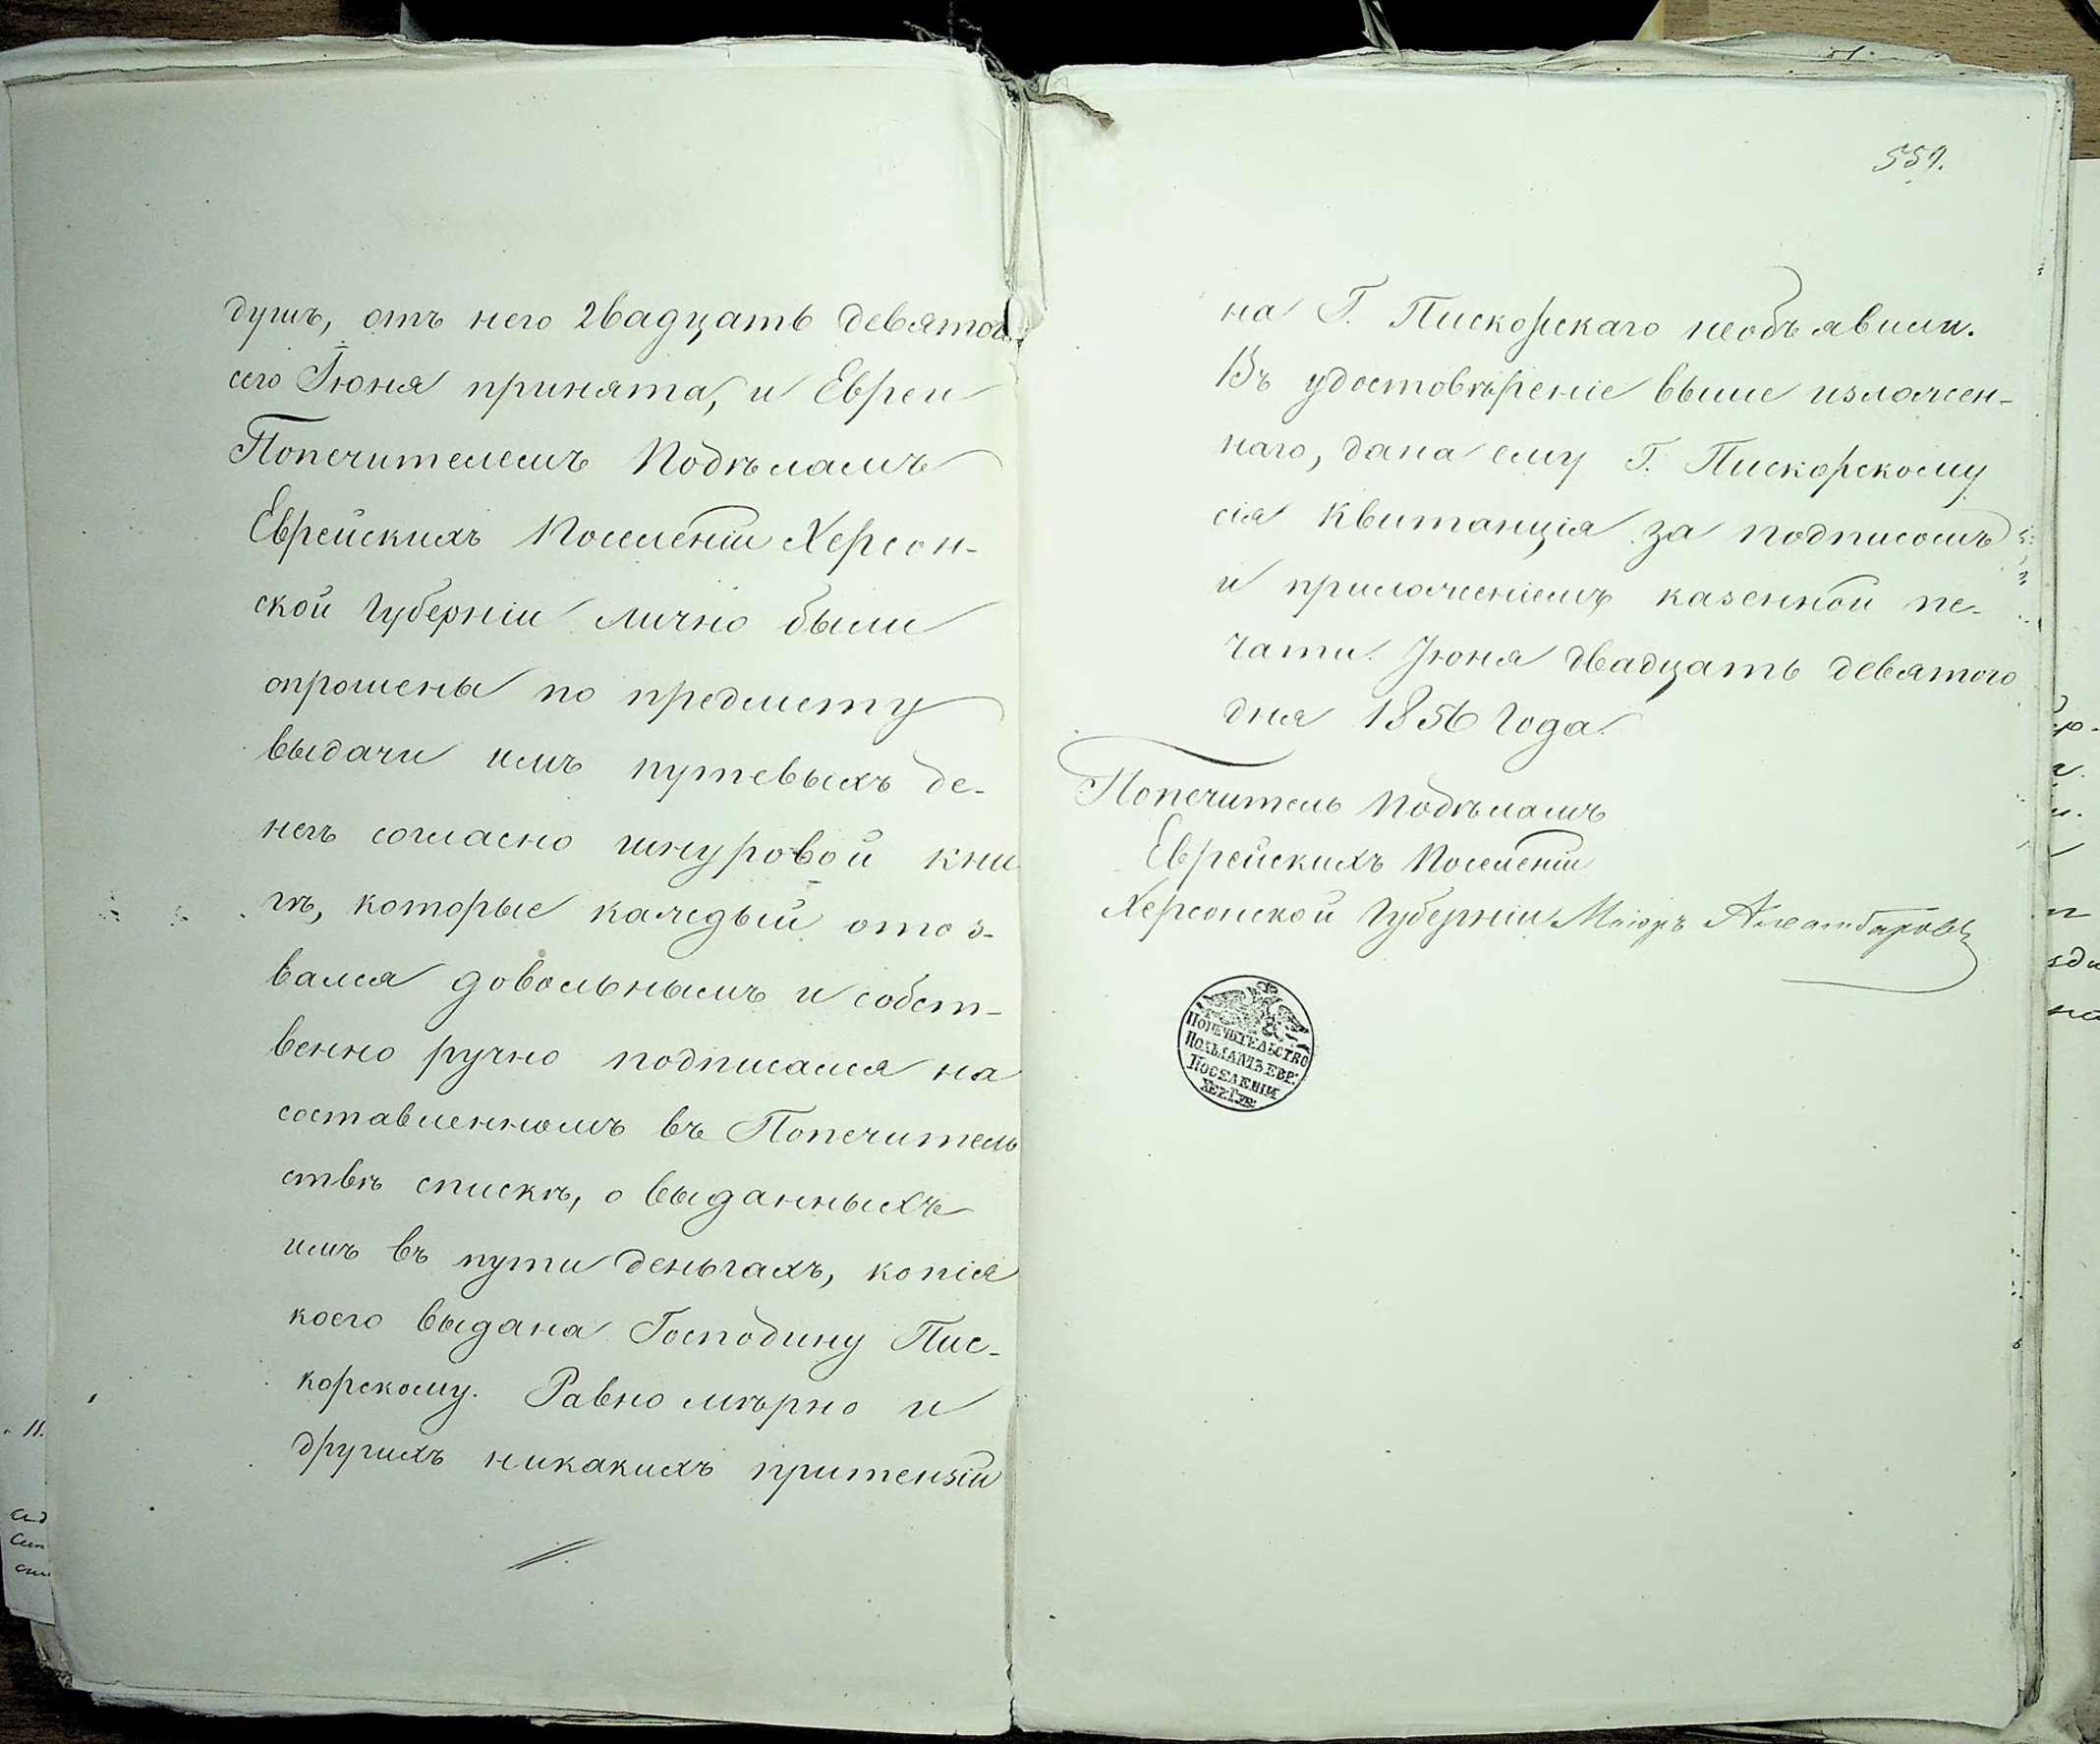 душъ, отъ него двадцать девятог
сего Іюня принята, и Евреи
Попечителемъ Подѣламъ
Еврейскихъ Поселеній Херсон-
ской Губерніи лично были
опрошены по предмету
выдачи имъ путевыхъ де-
негъ согласно шнуровой кни
гѣ, которые каждый отоз-
вался довольнымъ и собст-
венно ручно подписался на
составленномъ въ Попечитель
ствѣ спискѣ, о выданныхъ
имъ въ пути деньгахъ, копія
коего выдана Господину Пис-
корскому. Равно мѣрно и
другихъ никакихъ притензій
559.
на Г. Пискорскаго необъявили.
Въ удостовѣреніе выше изложен-
наго, дана ему Г. Пискорскому
сія Квитанція за подписомъ
и приложеніемъ казенной пе-
чати. Іюня двадцать девятого
дня 1856 Года.
Попечитель Подѣламъ
Еврейскихъ Поселеній
Херсонской Губерніи Маіоръ
ПОПЕЧИТЕЛЬСТВО
ПОДѢЛАМЪ ЕВР:
ПОСЕЛЕНІЙ
ХЕР: ГУБ: